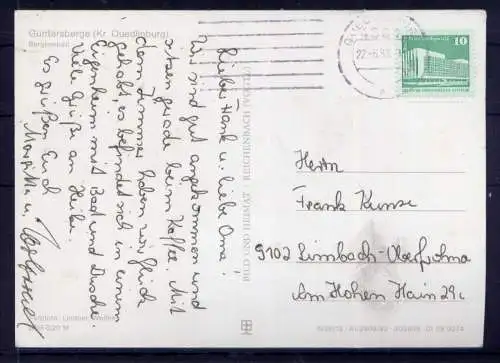 Güntersberge (Kr. Quedlinburg)
Bergseebad
22.-6.
10
Lieber Frank u. liebe Oma!
Wir sind gut angekommen und
sitzen gerade beim Kaffee. Mit
dem Zimmer haben wir Glück
gehabt, es befindet sich in einem
Eigenheim mit Bad und Dusche.
Viele Grüße an Heike.
Es grüßen Euch
u.
BILD UND HEIMAT · REICHENBACH (VOGTL)
Herrn
Frank Kunze
9102 Limbach-Oberfrohna
Am Hohen Hain 29c